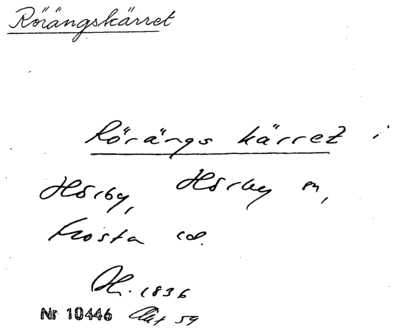 Rörängskärret
Rörängs kärret i
Hörby, Hörby sn,
Frosta hd.
Ök. 1836
Nr 10446 Akt 59